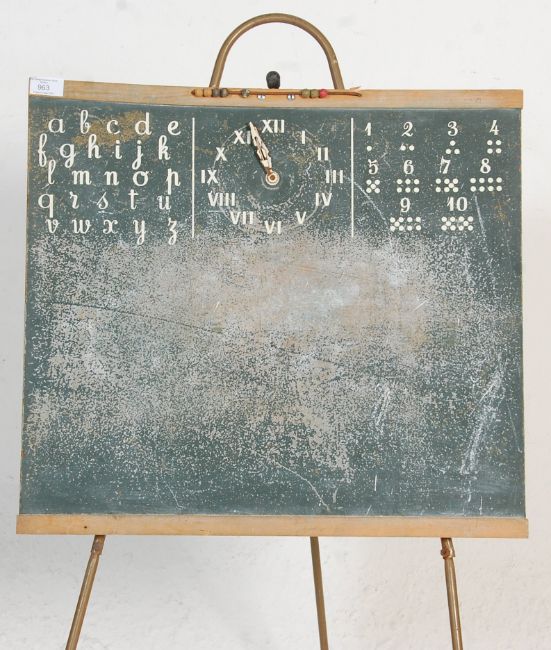 963
a b c d e
f g h i j k
l m n o p
q r s t u
v w x y z
XII
I
II
III
IV
V
VI
VII
VIII
IX
X
XI
1 2 3 4
5 6 7 8
9 10